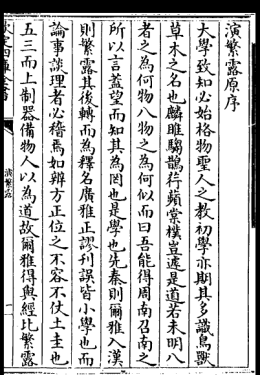 演繁露原序
大學致知必始格物聖人之教初學亦期其多識鳥獸
草木之名也麟雎騶鵲荇蘋棠樸豈遽是道若未明八
者之為何物八物之為何似而曰吾能得周南召南之
所以言蓋望而知其為罔也是學也先秦則爾雅入漢
則繁露其後轉而為釋名廣雅正謬刊誤皆小學也而
論事談理者必稽焉如辨方正位之不容不仗土圭也
五三而上制器備物人以為道故爾雅得與經比繁露
演繁露
一